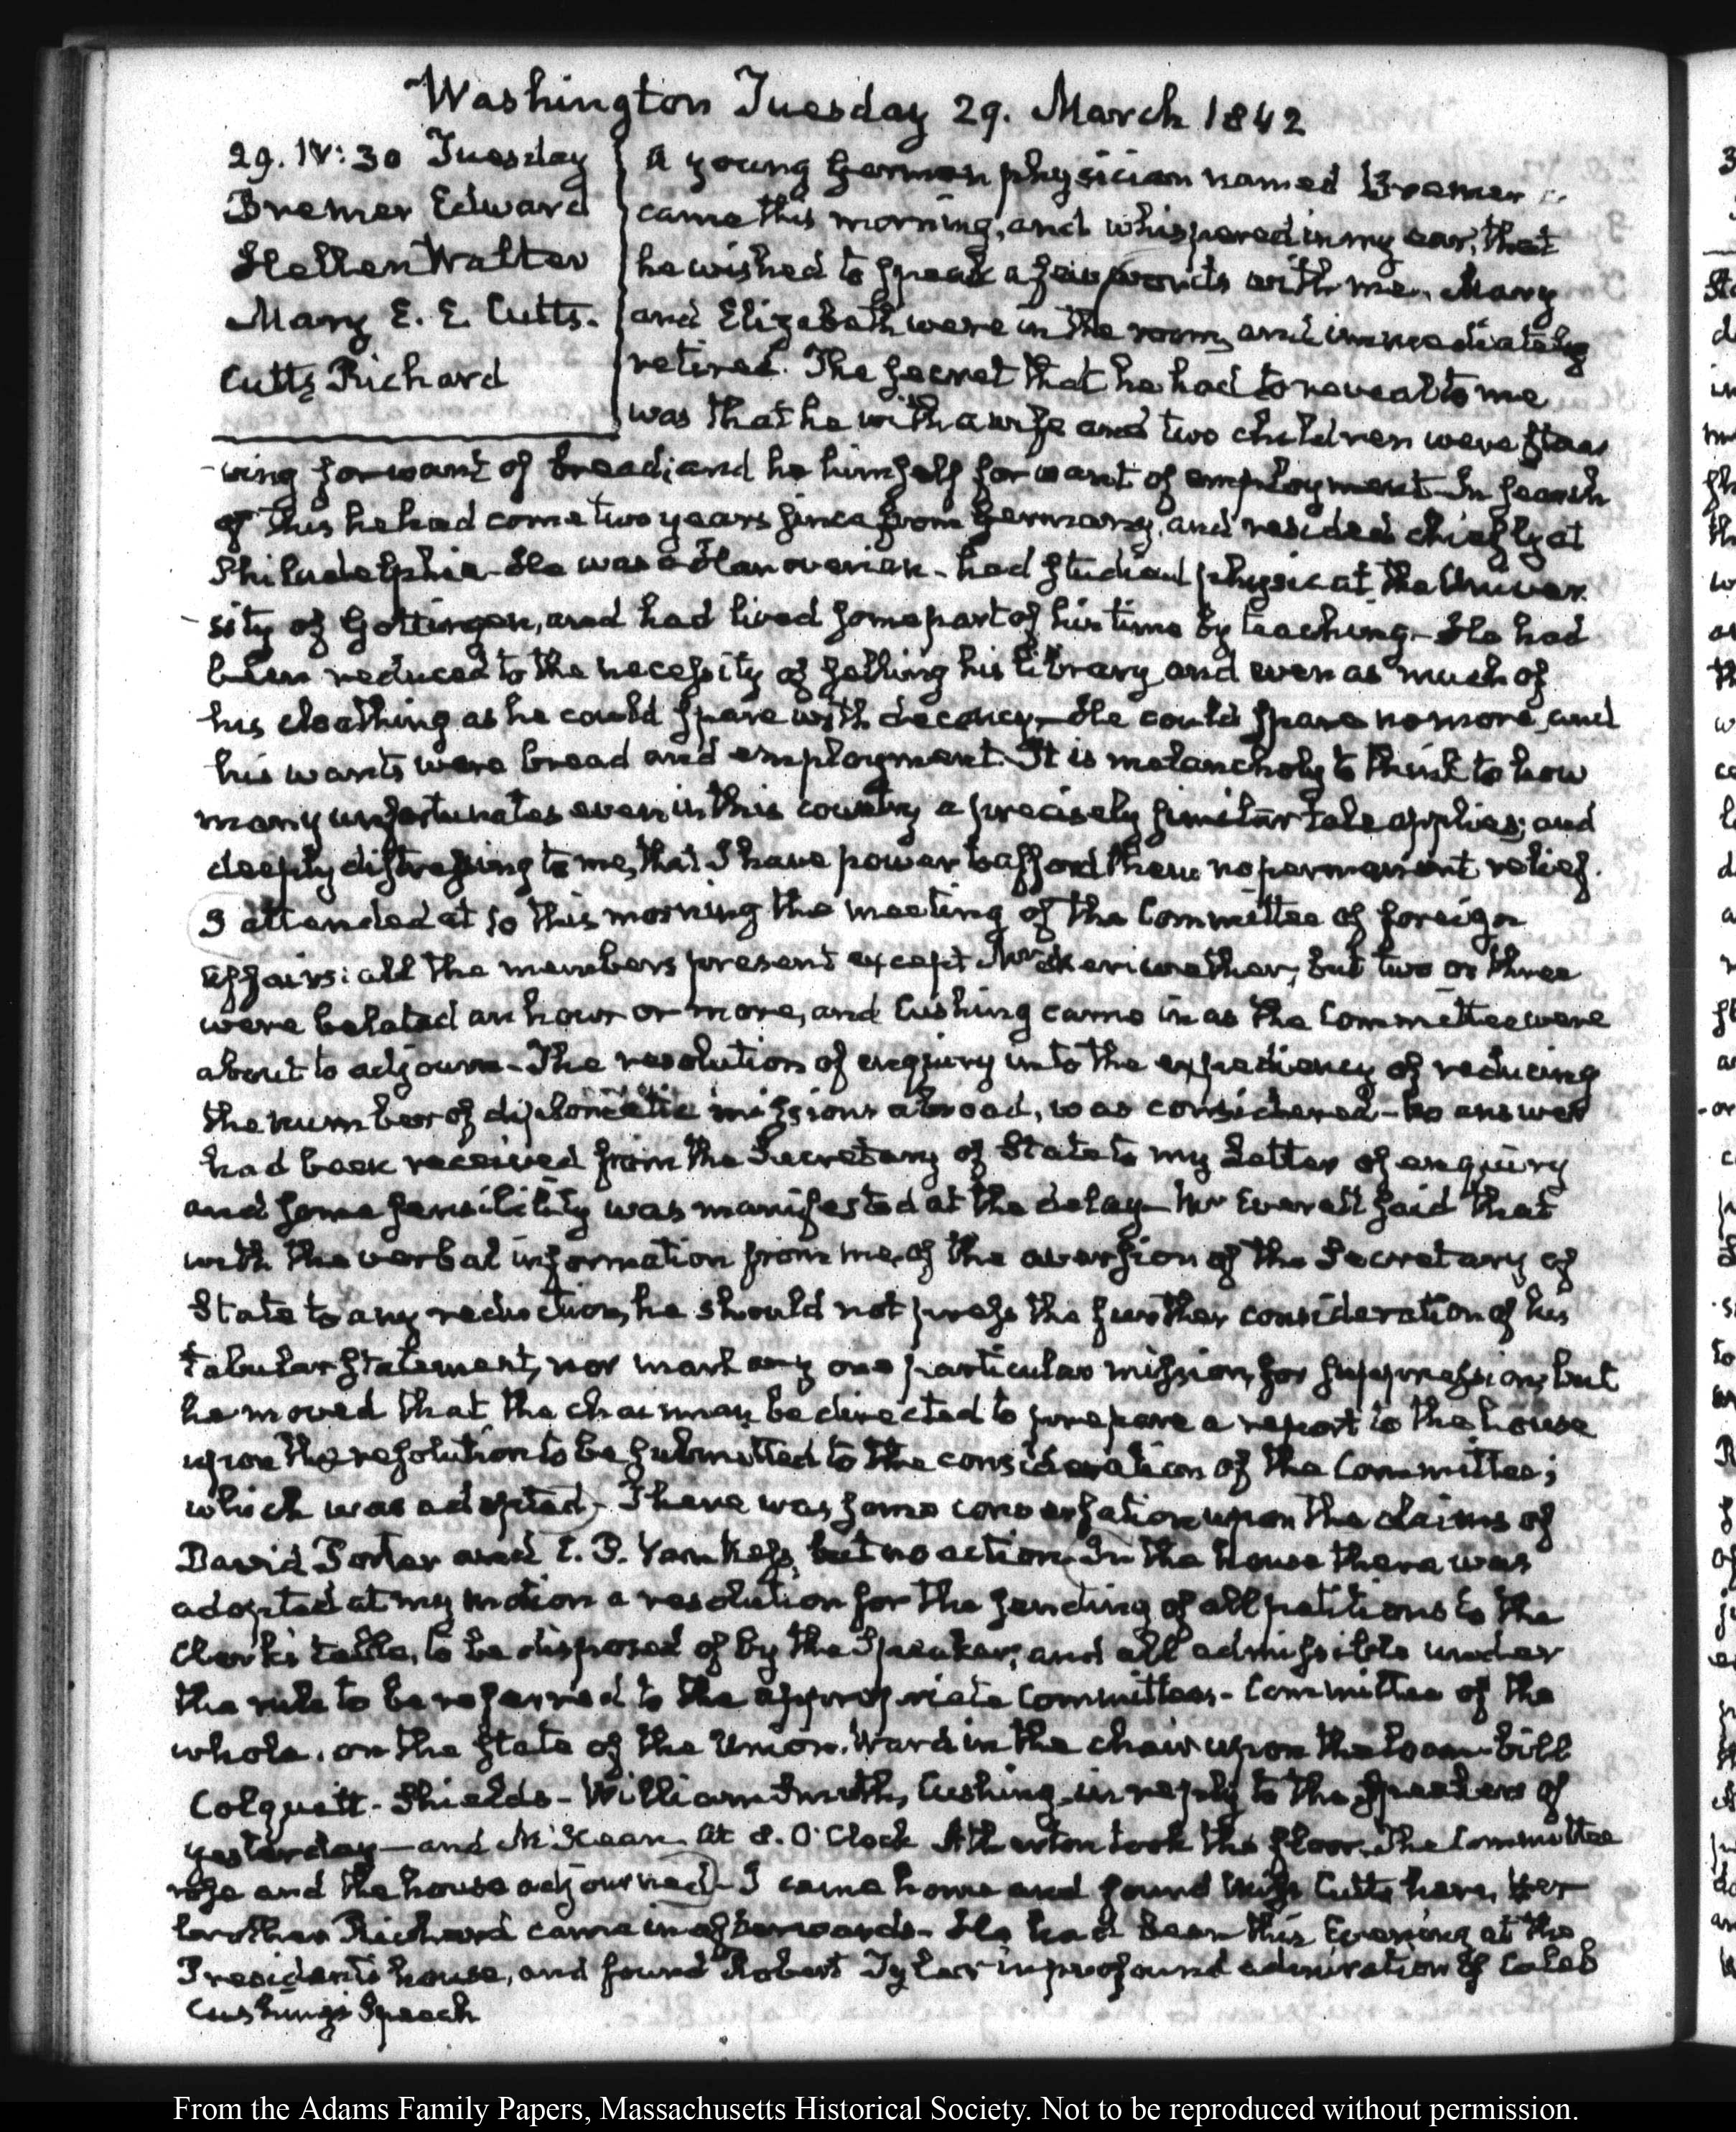 Washington Tuesday 29. March 1842
29. IV: 30 Tuesday
Bremer Edward
Hellen Walter
Mary E. E. Cutts.
Cutts Richard
A young German physician named Bremer
came this morning, and whispered in my ear, that
he wished to speak a few words with me. Mary
and Elizabeth were in the room, and immediately
retired. The secret that he had to reveal to me
was that he with a wife and two children were star
-ving for want of bread; and he himself for want of employment. In search
of this he had come two years since from Germany, and resided chiefly at
Philadelphia. He was a Hanoverian - had studied physic at the Univer
-sity of Gottingen, and had lived some part of his time by teaching. He had
been reduced to the necessity of selling his library and even as much of
his cloathing as he could spare with decency. He could spare no more, and
his wants were bread and employment. It is melancholy to think to how
many unfortunates even in this country a precisely similar tale applies; and
deeply distressing to me, that I have power to afford them no permanent relief.
I attended at 10 this morning the meeting of the Committee of foreign
affairs: all the members present except Mr Meriwether; but two or three
were belated an hour or more, and Cushing came in as the Committee were
about to adjourn - The resolution of enquiry into the expediency of reducing
the number of diplomatic missions abroad, was considered - No answer
had been received from the Secretary of State to my Letter of enquiry
and some sensibility was manifested at the delay - Mr Everett said that
with the verbal information from me, of the aversion of the Secretary of
State to any reduction, he should not press the further consideration of his
tabular statement, nor mark any one particular mission, for suppression; but
he moved that the chairman be directed to prepare a report to the house
upon the resolution to be submitted to the consideration of the Committee;
which was adopted - There was some conversation upon the claims of
David Porter and E. B. but no action - In the house there was
adopted at my motion a resolution for the sending of all petitions to the
Clerk's table, to be disposed of by the Speaker; and all admissible under
the rule to be referred to the appropriate Committees - Committee of the
whole, on the state of the Union. Ward in the chair upon the loan-bill
Colquitt - Shields - William Smith, Cushing in reply to the Speakers of
yesterday - and McKean. At 8. O'Clock Atherton took the floor. The Committee
rose and the house adjourned - I came home and found Miss Cutts here, her
brother Richard came in afterwards - He had been this Evening at the
President's house, and found Robert Tyler in profound admiration of Caleb
Cushing's Speech
From the Adams Family Papers, Massachusetts Historical Society. Not to be reproduced without permission.